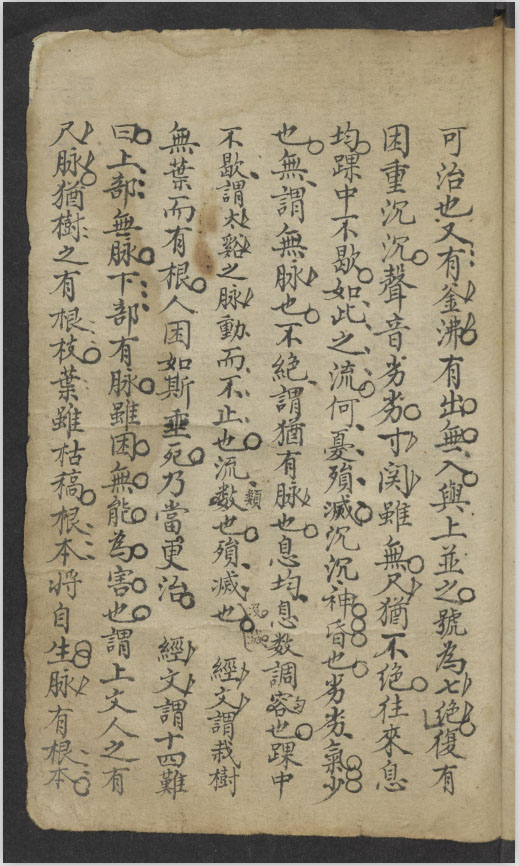 可治也又有釜沸有出無入與上並之號為七絕復有
困重沉沉聲音劣劣寸関雖無尺猶不絕往來息
均踝中不歇如此之流何憂殞滅沉沉神昏也劣劣氣少
也無謂無脉也不絕謂猶有脉也息均息数調容也踝中
不歇謂太谿之脉動而不止也流数也殞滅也 經文謂栽樹
無葉而有根人困如斯垂死乃當更治 經文謂十四難
曰上部無脉下部有脉雖困無能為害也謂上文人之有
尺脉猶樹之有根枝葉雖枯稿根本將自生脉有根本
類
匀